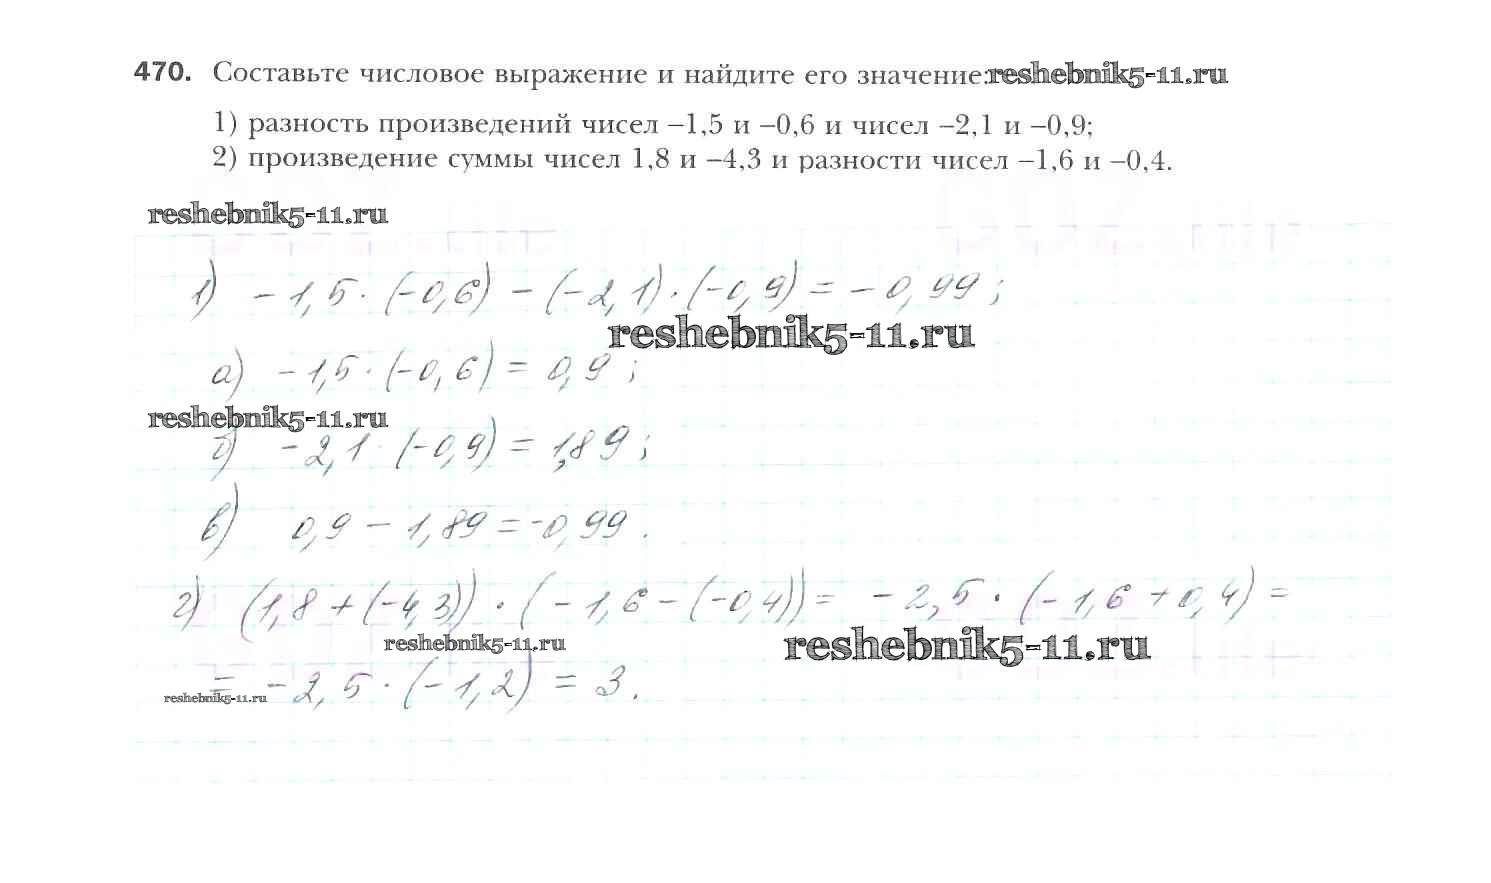 470. Составьте числовое выражение и найдите его значение:reshebnik5-11.ru
1) разность произведений чисел –1,5 и –0,6 и чисел –2,1 и –0,9;
2) произведение суммы чисел 1,8 и –4,3 и разности чисел –1,6 и –0,4.
reshebnik5-11.ru
1) -1,5·(-0,6)-(-2,1)·(-0,9)=-0,99;
reshebnik5-11.ru
а) -1,5·(-0,6)=0,9;
reshebnik5-11.ru
б) -2,1·(-0,9)=1,89;
в) 0,9-1,89=-0,99.
2) (1,8+(-4,3))·(-1,6-(-0,4))= -2,5·(-1,6+0,4)=
reshebnik5-11.ru reshebnik5-11.ru
= -2,5·(-1,2)=3.
reshebnik5-11.ru